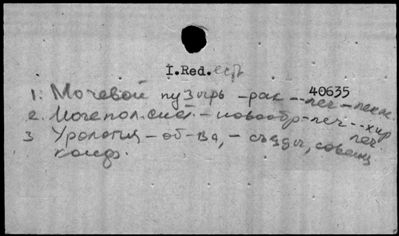 I.Red. есть
40635
1. Мочевой пузырь - рак - леч - лекц.
2. Мочепол. сист. - новообр - леч - хир
3 Урология - об-ва, - съезды, совещ
конф.